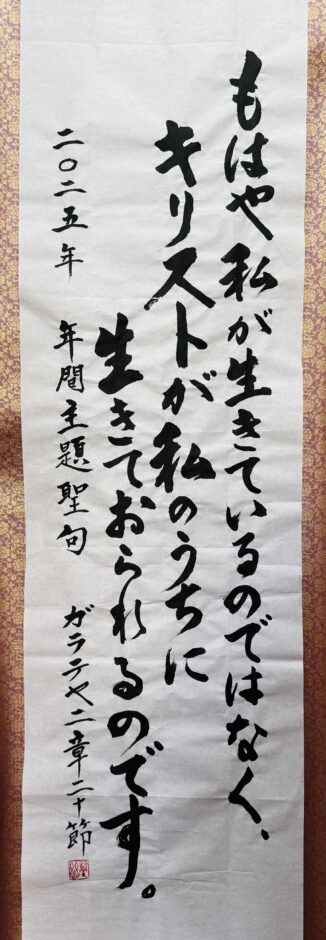 もはや私が生きているのではなく、
キリストが私のうちに
生きておられるのです。
二〇二五年 年間主題聖句 ガラテヤ二章二十節